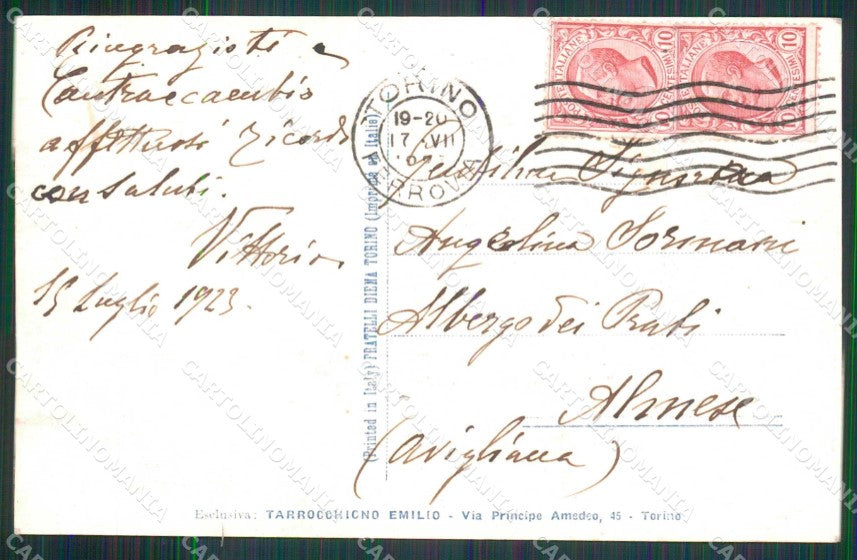 Ringrazioti e
Contraccambio
affettuosi ricordi
con saluti.
Vittorio
15 Luglio 1923.
TORINO
19-20
17 VII
FERROVIA
10
10
Gentilma Signorina
Angiolina Sormani
Albergo dei Prati
Almese
(Avigliana)
(Printed in Italy) FRATELLI DIENA TORINO (Imprimé en Italie)
Esclusiva: TARROCCHIGNO EMILIO - Via Principe Amedeo, 45 - Torino
CARTOLINOMANIA